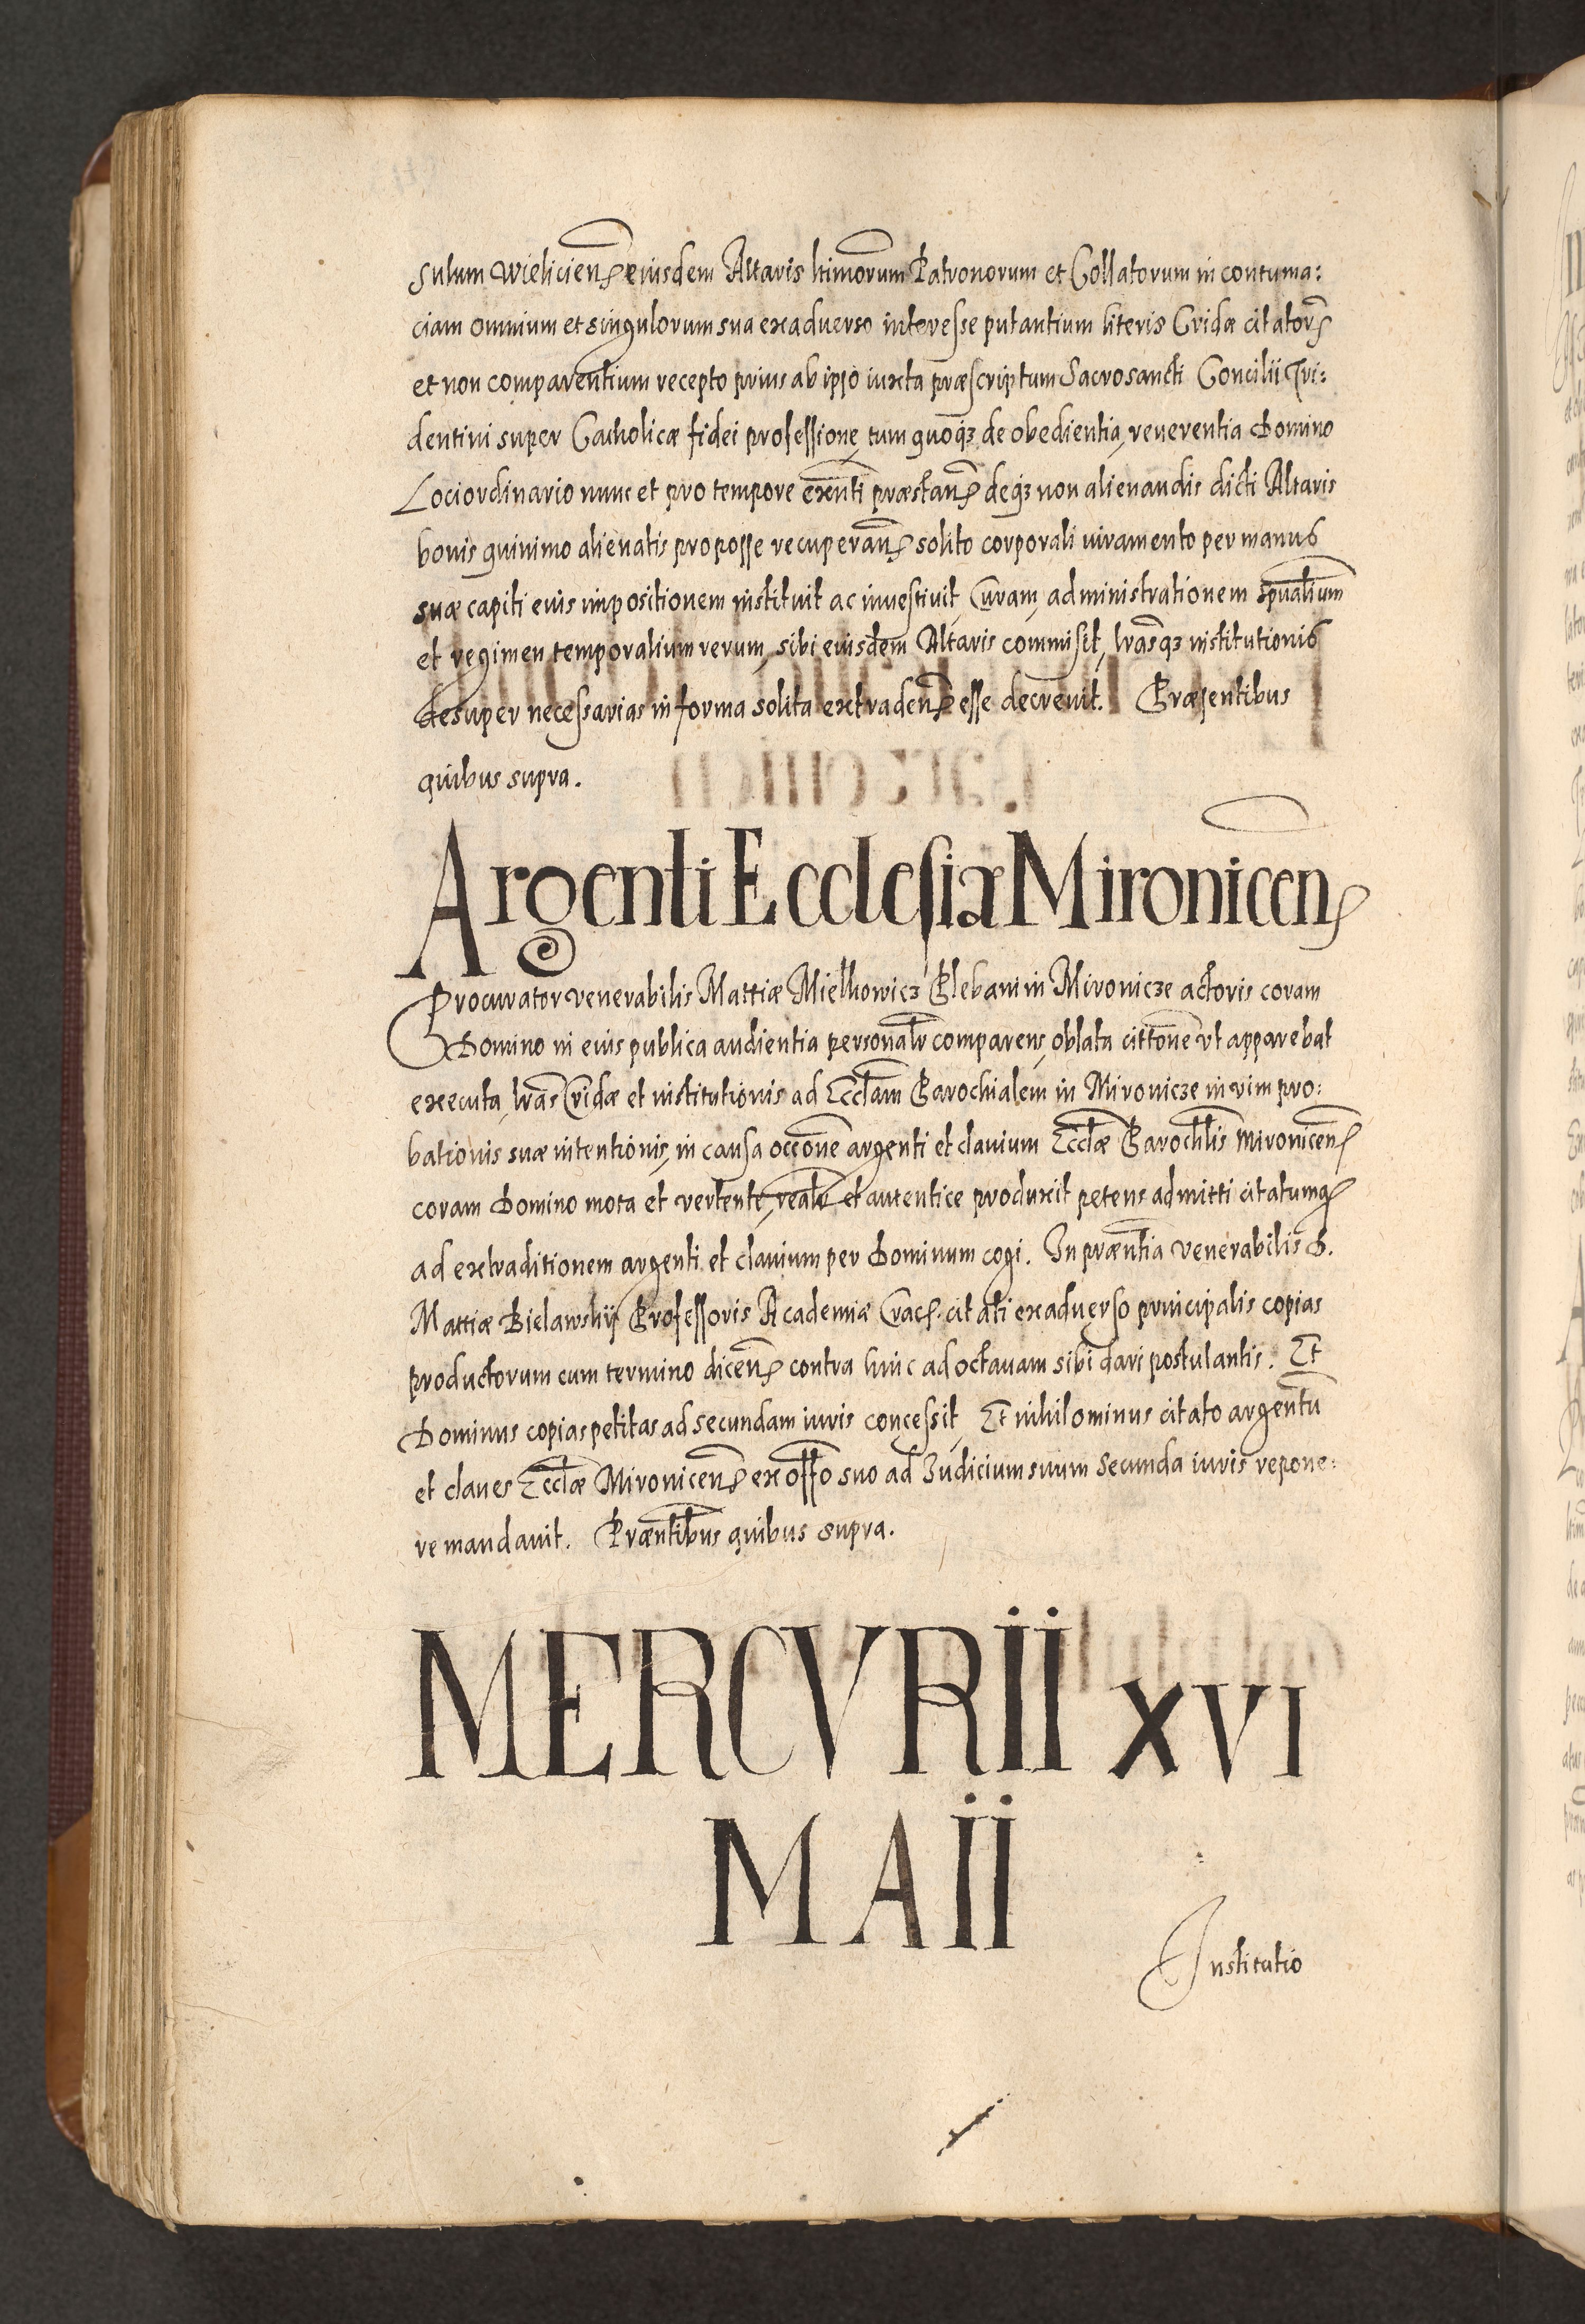 sulum Wieliciens eiusdem Altaris ltimorum Patronorum et Collatorum in contuma:
ciam omnium et singulorum sua ex adverso interesse putantium literis Cridæ citators
et non comparentium recepto prius ab ipso iuxta præscriptum Sacrosancti Concilii Tri:
dentini super Catholicæ fidei professione, tum quoq3 de obedientia, reverentia Domino
Lociordinario nunc et pro tempore exnti præstans deq3 non alienandis dicti Altaris
bonis quinimo alienatis pro posse recuperans solito corporali iuramento per manus
suæ capiti eius impositionem instituit ac investivit, Curam, administrationem spualium
et regimen temporalium rerum, sibi eiusdem Altaris commisit, lrasq3 institutionis
desuper necessarias in forma solita extradens esse decrevit. Præsentibus
quibus supra.
Argenti Ecclesiæ Mironicens
Procurator venerabilis Mattiæ Mielhowicz Plebani in Mironicze actoris coram
Domino in eius publica audientia personalr comparens, oblata cittone vt apparebat
executa, lras Cridæ et institutionis ad Ecclam Parochialem in Mironicze in vim pro:
bationis suæ intentionis, in causa occone argenti et clavium Ecclæ Parochlis Mironicens
coram Domino mota et vertente, realr et autentice produxit petens admitti citatumq
ad extraditionem argenti et clavium per Dominum cogi. In præntia venerabilis D.
Mattiæ Bielawskij Professoris Academiæ Crac. citati ex adverso principalis copias
productorum cum termino dicens contra hinc ad octavam sibi dari postulantis. Et
Dominus copias petitas ad secundam iuris concessit, Et nihilominus citato argentu
et claves Ecclæ Mironicens ex offo suo ad Iudicium suum secunda iuris repone:
re mandavit. Præntibus quibus supra.
MERCVRII XVI
MAII
Institutio